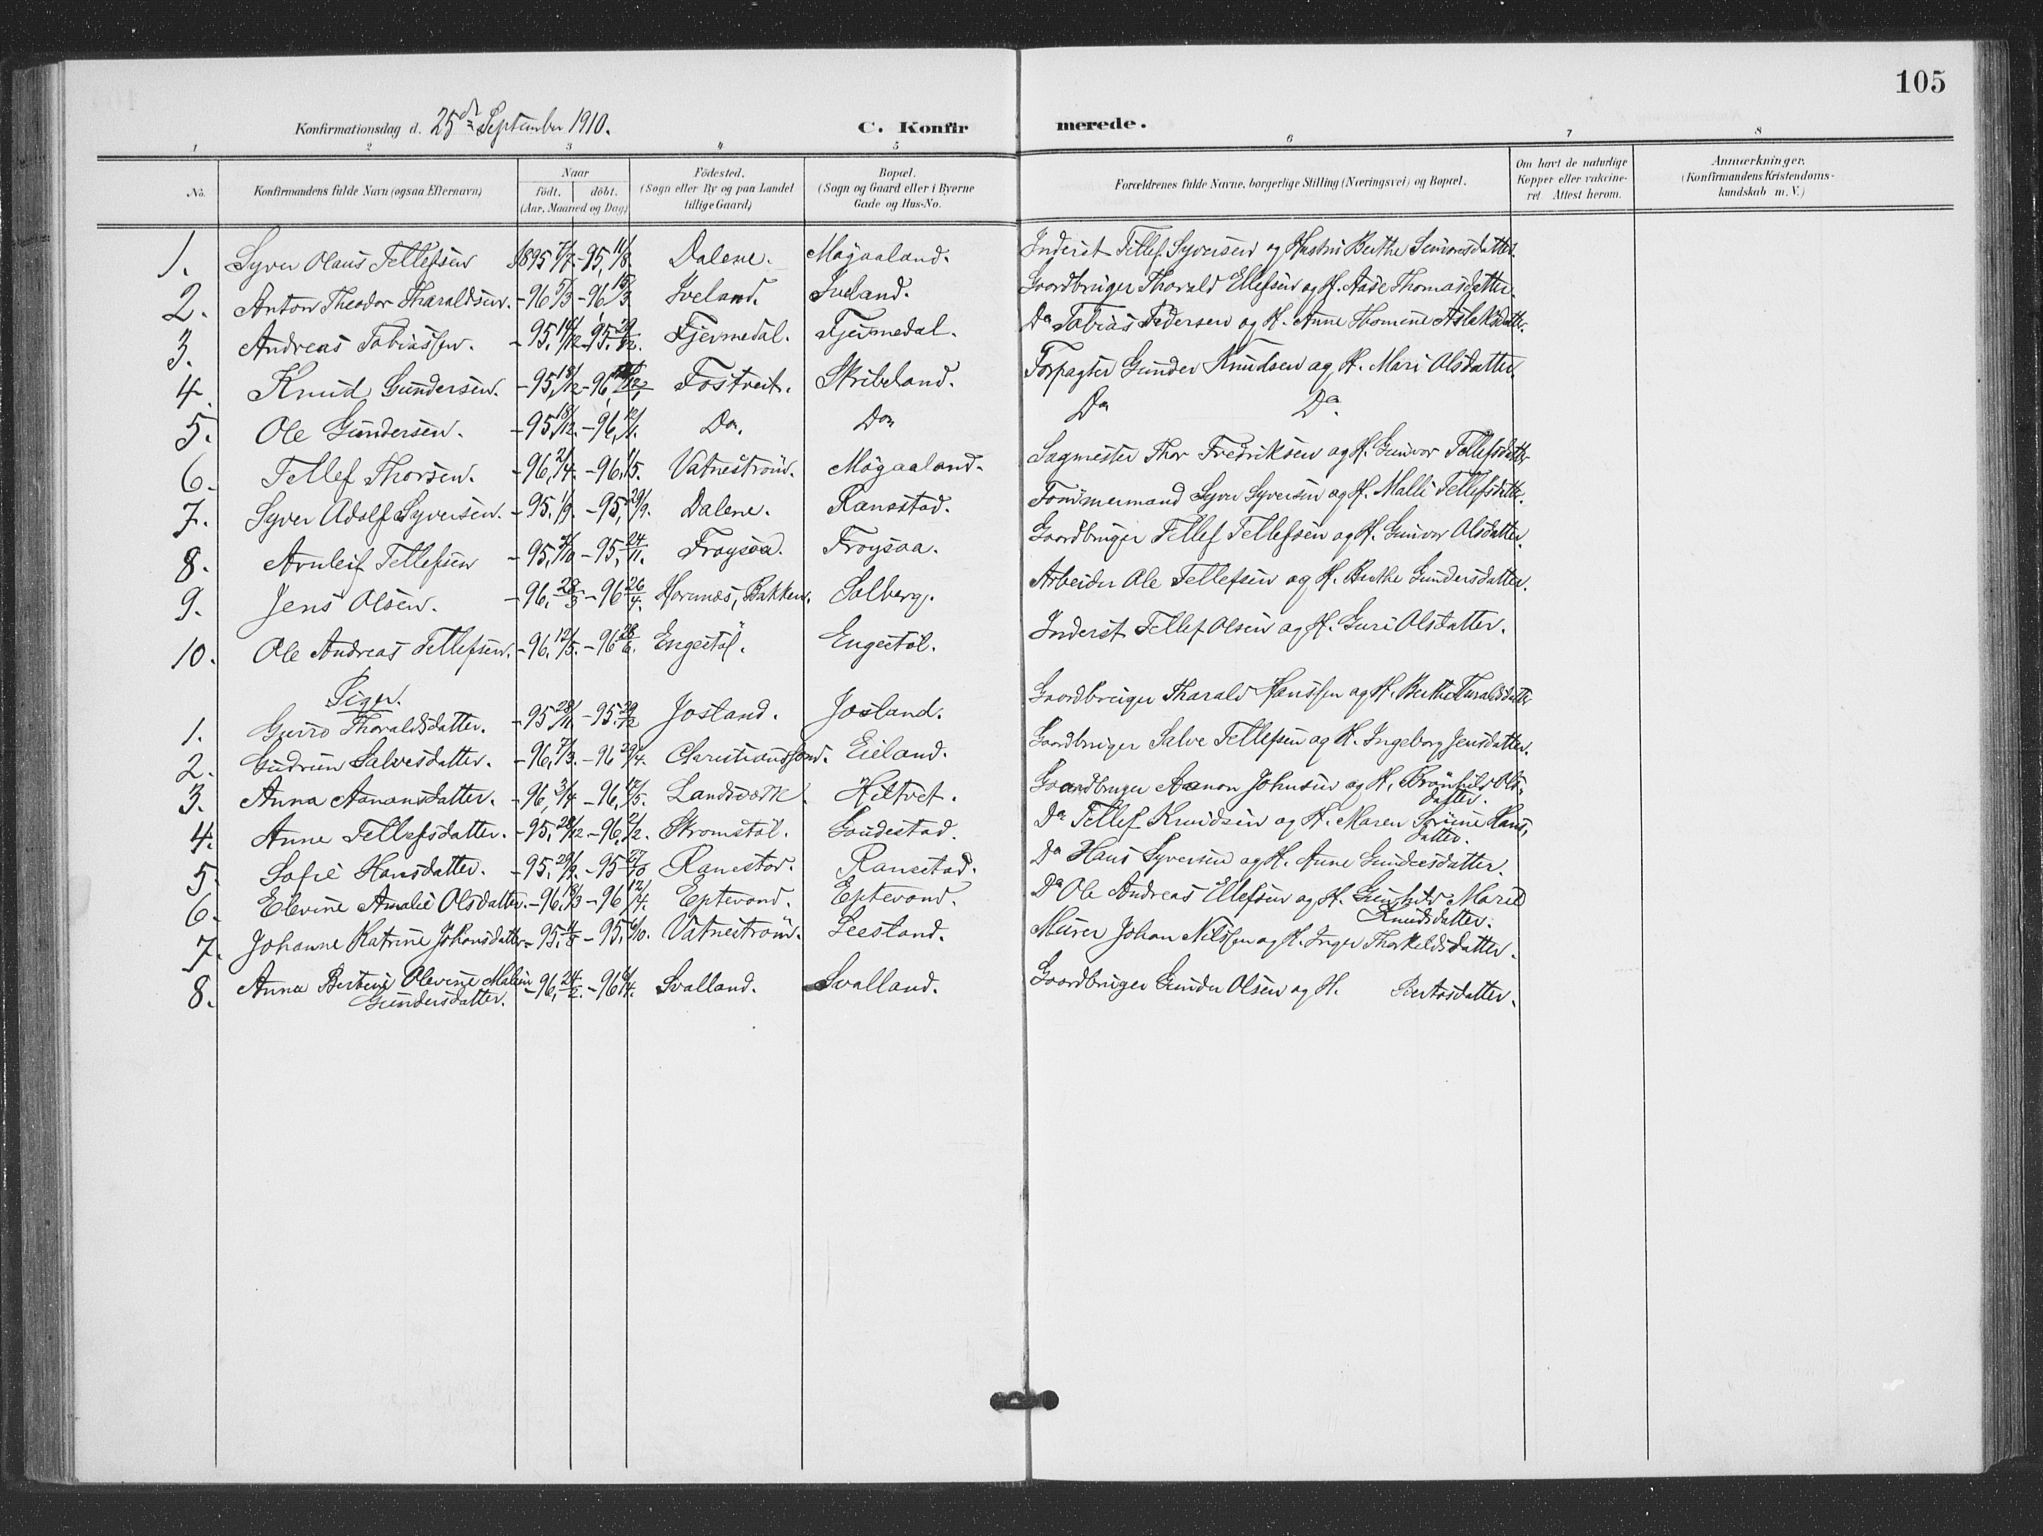 105
Konfirmationsdag d. 25de September 1910.
C. Konfirmerede.
1 2 3 4 5 6 7 8
No. Konfirmandens fulde Navn (ogsaa Efternavn) Naar født. døbt. (Aar, Maaned og Dag) Fødested. (Sogn eller By og paa Landet tillige Gaard) Bopæl. (Sogn og Gaard eller i Byerne Gade og Hus-No. Forældrenes fulde Navne, borgerlige Stilling (Næringsvei) og Bopæl. Om havt de naturlige Kopper eller vakcineret Attest herom. Anmærkninger. (Konfirmandens Kristendomskundskab m. V.)
1. Syver Olaus Tellefsen 1895 7/7 -95, 11/8 Dalene. Møgaaland. Inderst Tellef Syversen og Hustru Berthe Simonsdatter.
2. Anton Theodor Tharaldsen. -96 5/3 -96, 15/3 Iveland. Iveland. Gaardbruger Tharald Ellefsen og H. Aase Thomasdatter.
3. Andreas Tobiassen. -95. 14/12 -95. 29/12 Fjermedal. Fjermedal. Do Tobias Pedersen og H. Anne Thomine Aslaksdatter.
4. Knud Gundersen. -95, 18/12 -96, Fostveit. Skribeland. Forpagter Gunder Knudsen og H. Mari Olsdatter.
5. Ole Gundersen. -95, 18/12. -96, 12/1. Do. Do Do Do.
6. Tellef Thorsen. -96, 2/4. -96, 1/5. Vatnestrøm. Møgaaland. Sagmester Thor Fredriksen og H. Gunvor Tellefsdatter
7. Syver Adolf Syversen. -95. 1/9. -95, 29/9. Dalene. Ranestad. Tømmermand Syver Syversen og H. Malli Tellefsdatter.
8. Arnleif Tellefsen -95, /10 -95, 24/11. Frøysaa. Frøysaa. Gaardbruger Tellef Tellefsen og H. Gunvor Olsdatter.
9. Jens Olsen. -96, 28/3 -96 26/4. Hornnes, Bakken. Solberg. Arbeider Ole Tellefsen og H. Berthe Gundersdatter.
10. Ole Andreas Tellefsen. -96, 12/5. -96 28/6. Engestøl. Engestøl. Inderst Tellef Olsen og H. Guri Olsdatter.
Piger.
1. Gurro Tharaldsdatter. -95 28/11 -95. 29/12 Josland. Josland. Gaardbruger Tharald Hanssen og H. Berthe Tharaldsdatter
2. Gudrun Salvesdatter. -96, 7/3. -96 29/4. Christianssand. Eieland. Gaardbruger Salve Tellefsen og H. Ingeborg Jensdatter.
3. Anna Aanonsdatter. -96, 3/4 -96, 17/5. Landsverk. Hiltvet. Gaardbruger Aanon Johnsen og H. Brønhild Ols-
datter.
4. Anne Tellefsdatter. -95, 28/12 -96. 2/2. Strømstøl. Gaudestad. Do Tellef Knudsen og H. Maren Serine Hans-
datter.
5. Sofie Hansdatter. -95. 29/9. -95 27/10 Ranestad. Ranestad. Do Hans Syversen og H. Anne Gundersdatter.
6. Elevine Amalie Olsdatter. -96, 18/3 -96 12/4. Eptevand. Eptevand. Do Ole Andreas Ellefsen og H. Gunhild Marie
Knudsdatter.
7. Johanne Katrine Johansdatter -95. 11/8 -95, 6/10. Vatnestrøm. Leestand. Murer Johan Nilssen og H. Inger Thorkeldsdatter.
8. Anna Berteus Olevine Malene
Gundersdatter. -96, 24/2. -96 6/4. Svalland. Svalland. Gaardbruger Gunder Olsen og H. Bertosdatter.